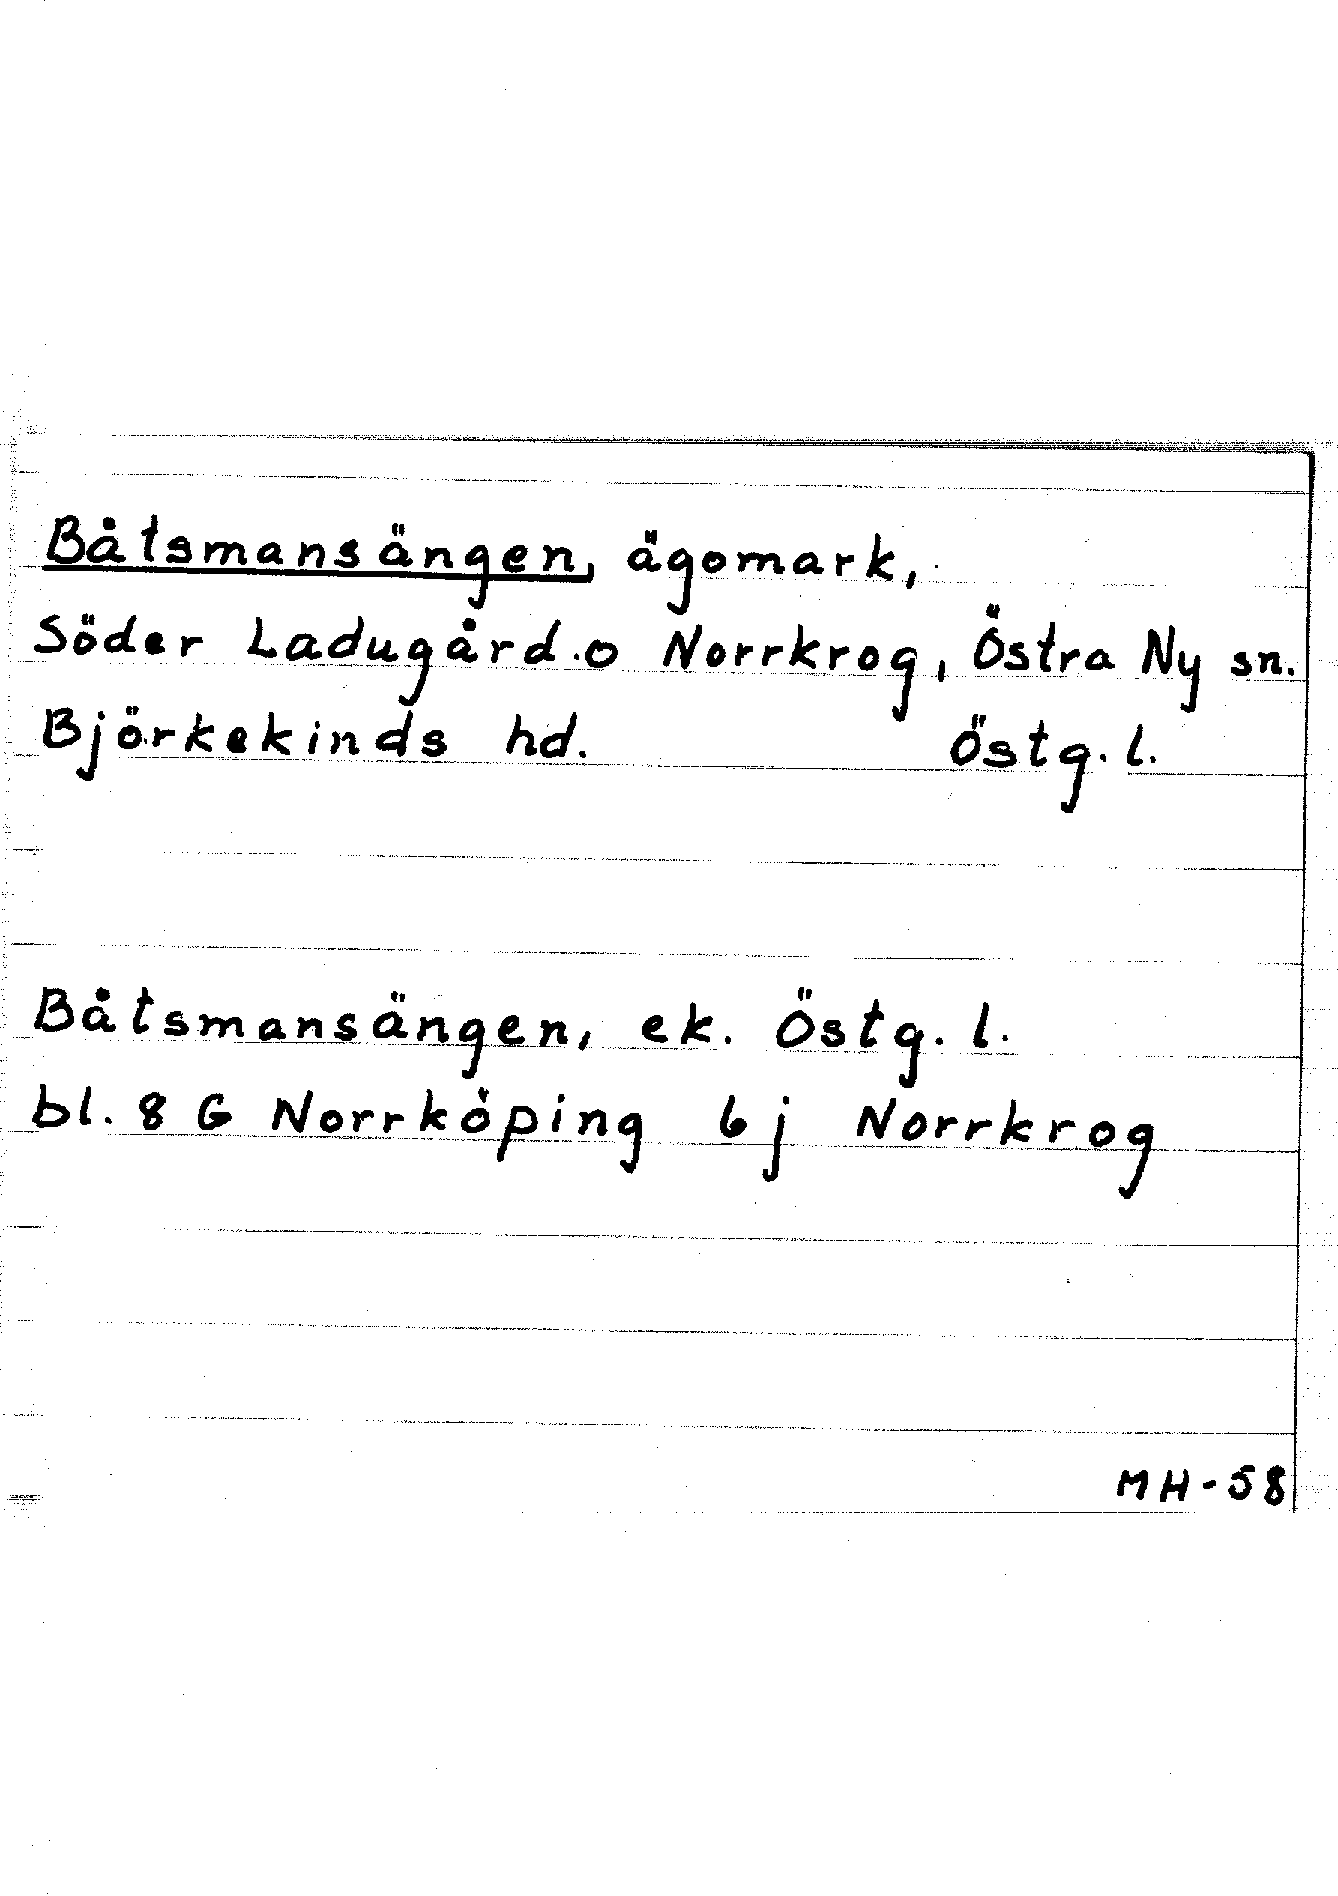 Båtsmansängen, ägomark,
Söder Ladugård o Norrkrog, Östra Ny sn.
Björkekinds hd. Östg. l.
Båtsmansängen, ek. Östg. l.
bl. 8 G Norrköping 6 j Norrkrog
MH-58